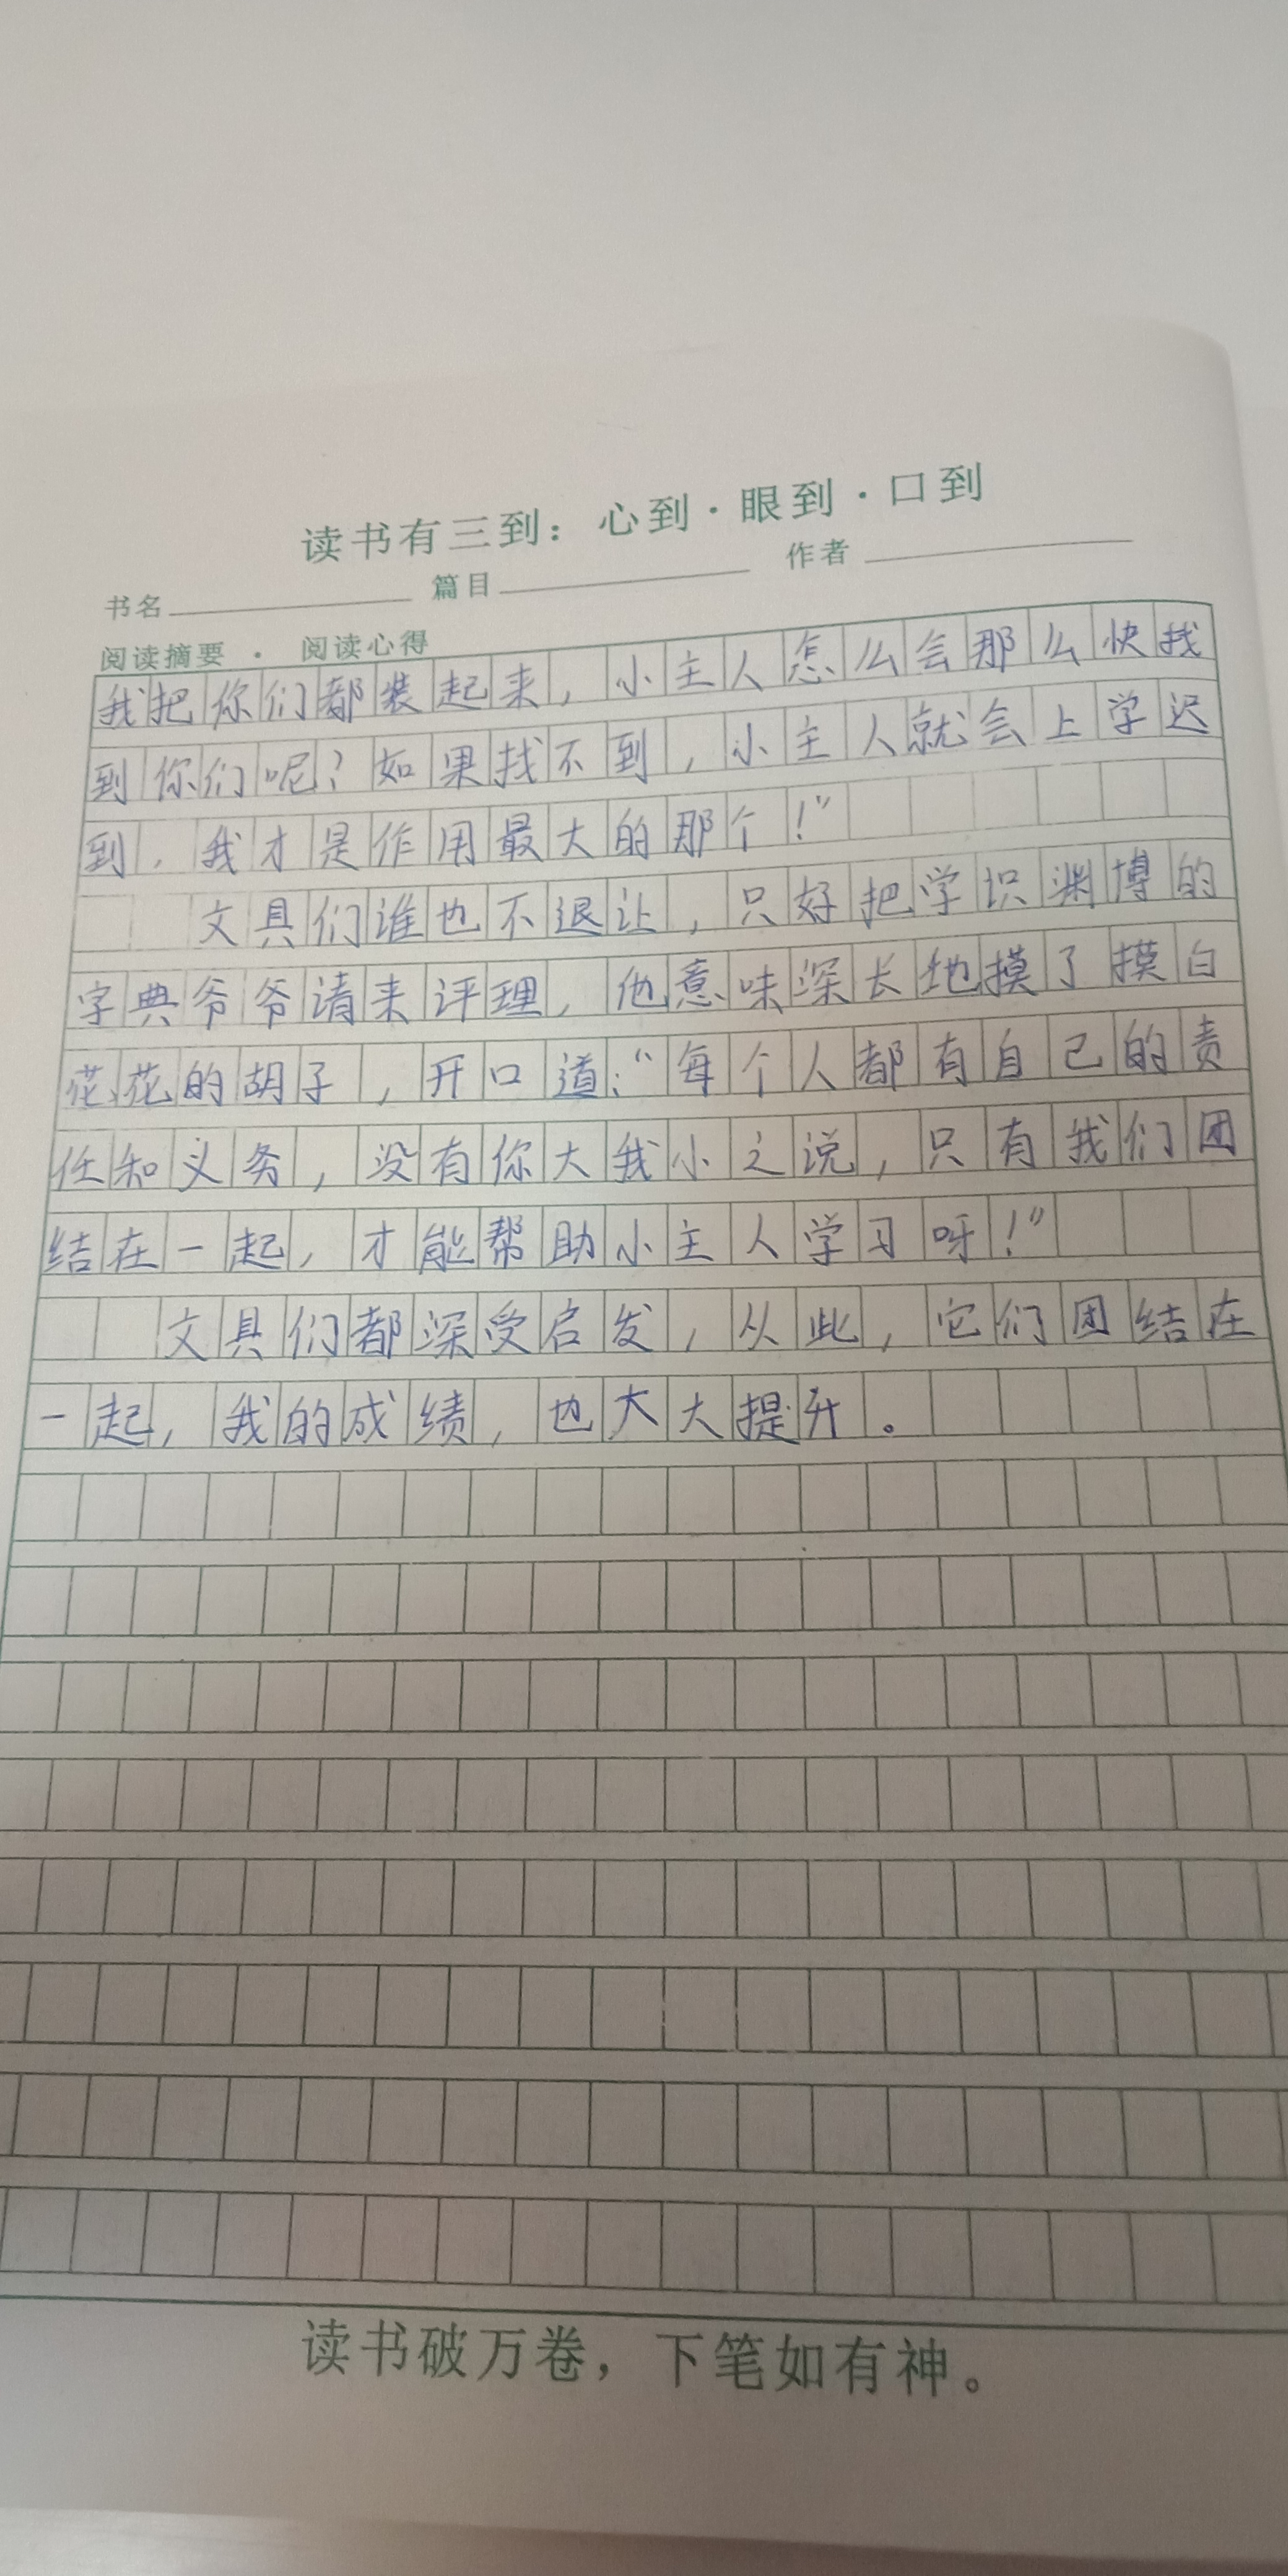 读书有三到：心到·眼到·口到
书名 篇目 作者
阅读摘要 · 阅读心得
我把你们都装起来，小主人怎么会那么快找
到你们呢？如果找不到，小主人就会上学迟
到，我才是作用最大的那个！”
文具们谁也不退让，只好把学识渊博的
字典爷爷请来评理，他意味深长地摸了摸白
花花的胡子，开口道：“每个人都有自己的责
任和义务，没有你大我小之说，只有我们团
结在一起，才能帮助小主人学习呀！”
文具们都深受启发，从此，它们团结在
一起，我的成绩，也大大提升。
读书破万卷，下笔如有神。